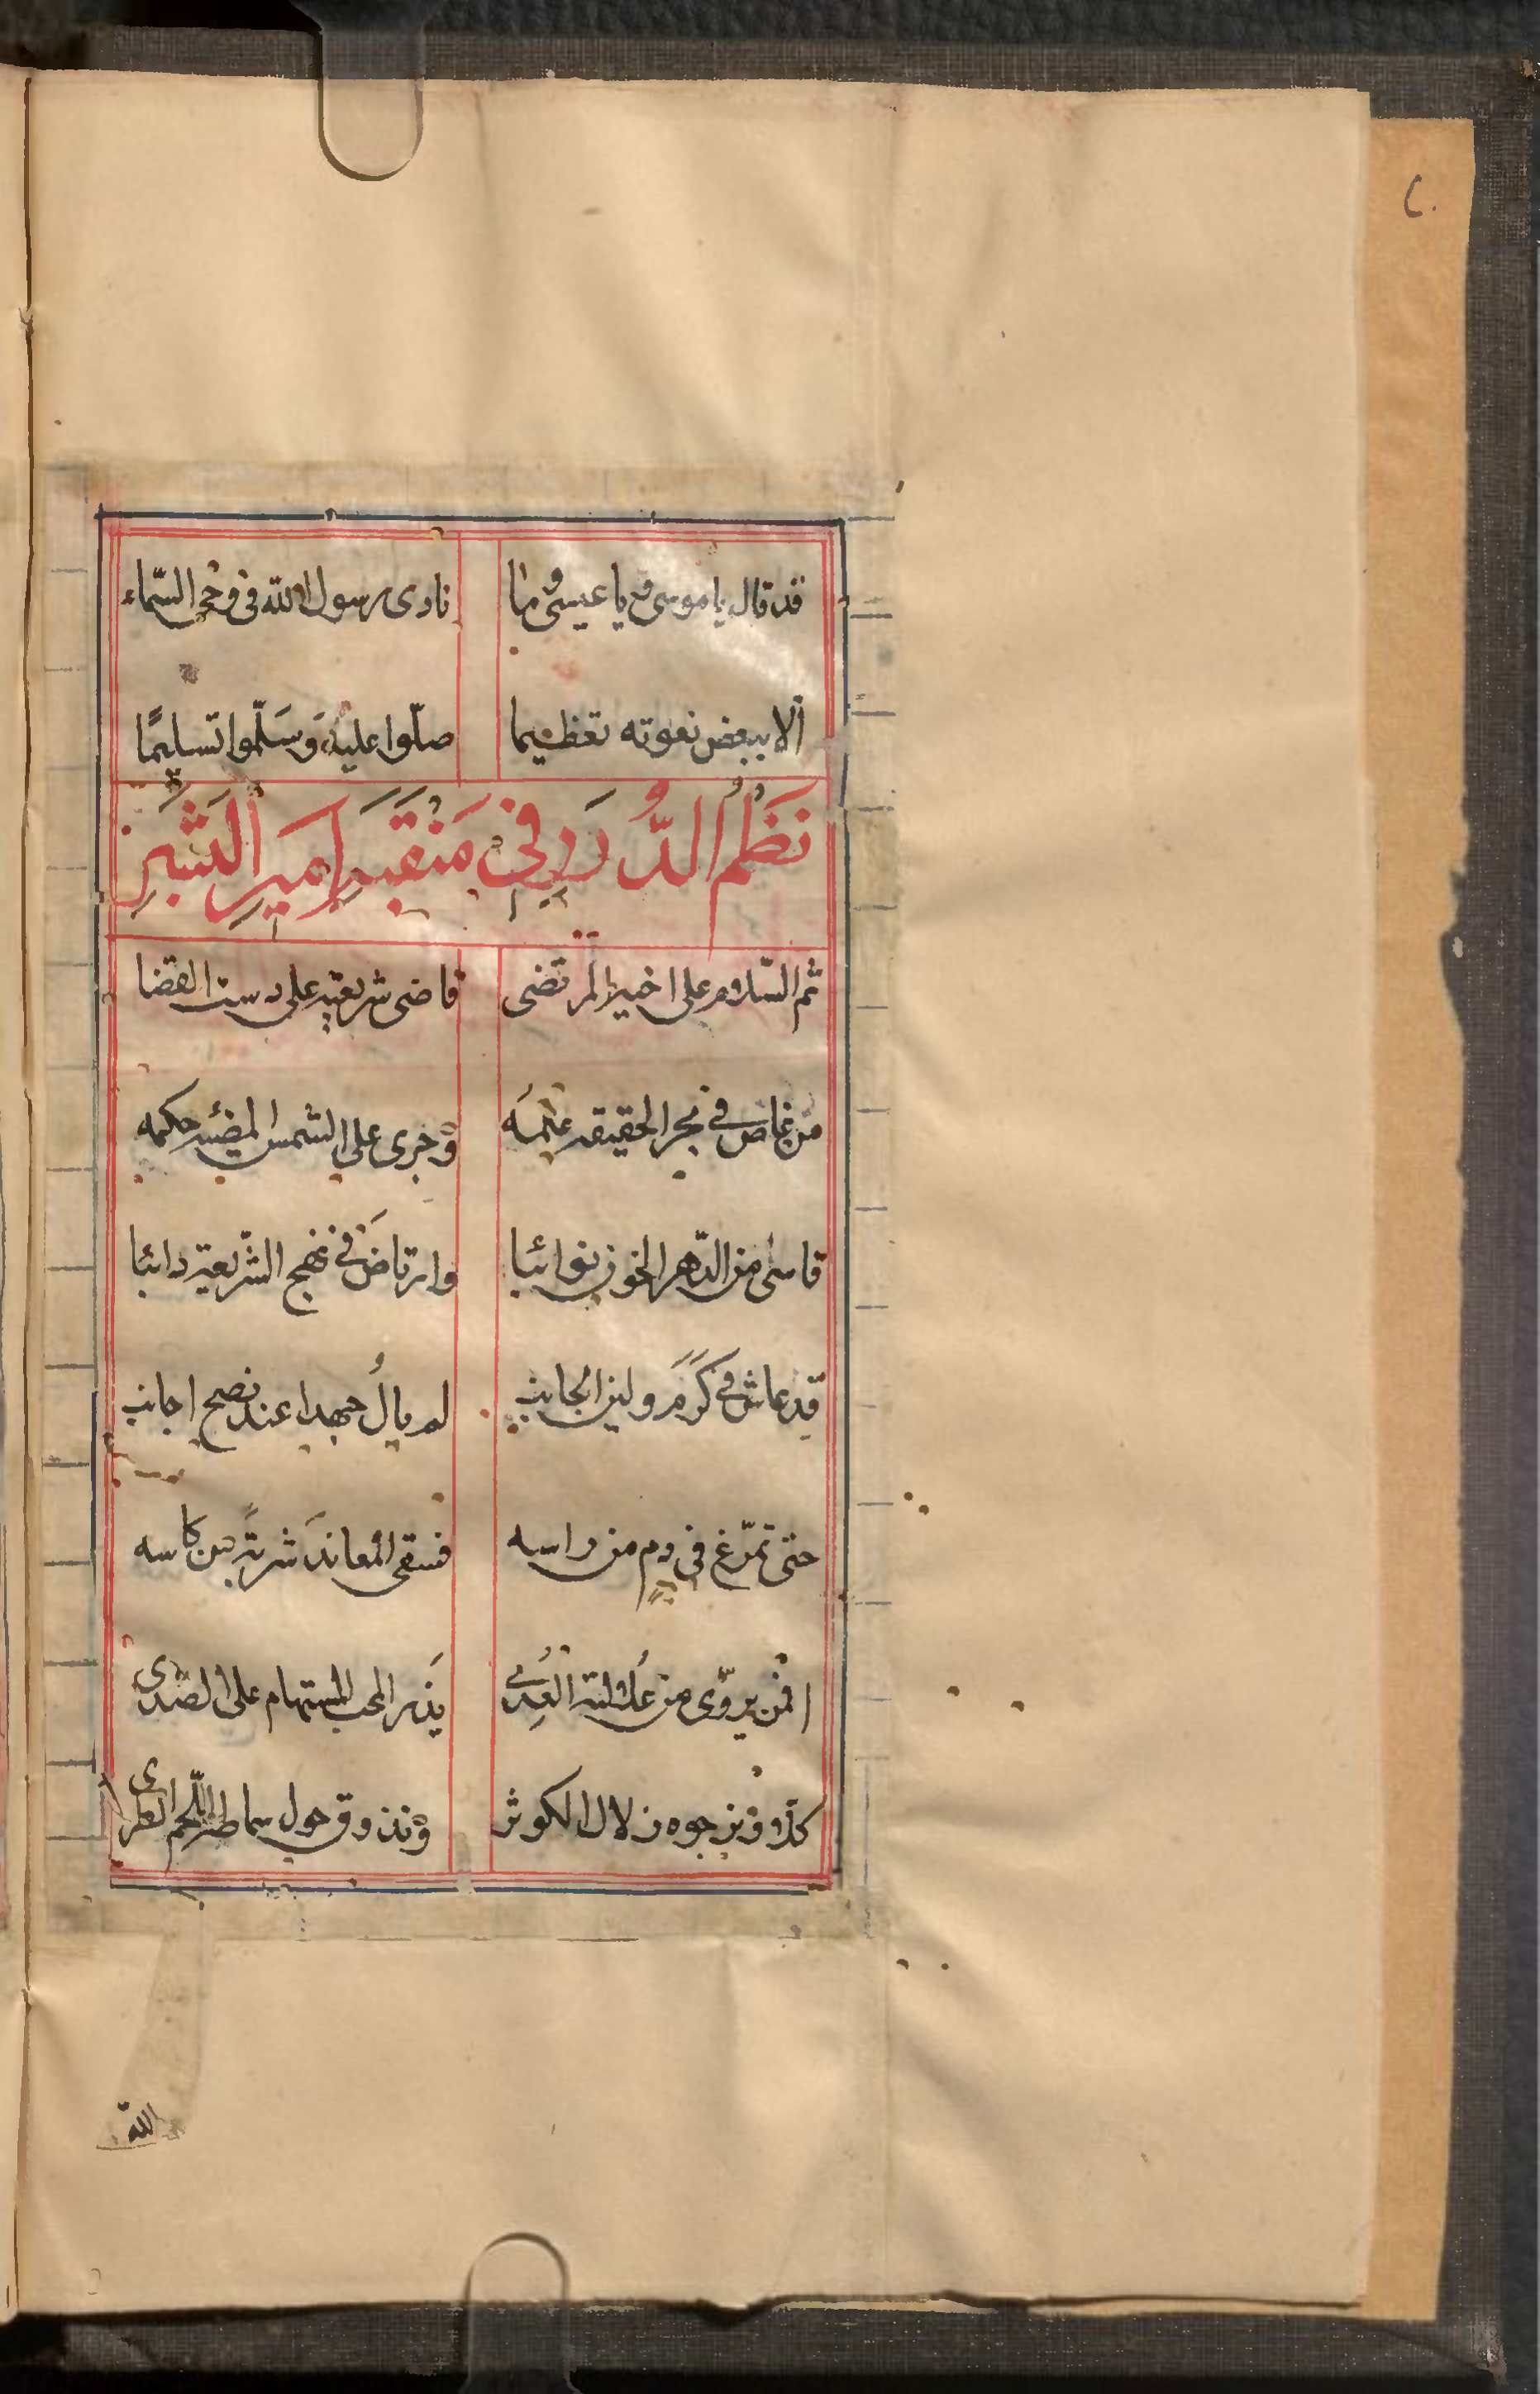 قد قال يا موسى و يا عيسى و ما نادى رسول الله فى وحى السّماء
ألا ببعض نعوته تعظيما صلّوا عليه وَسَلّموا تسليمًا
نَظمُ الدُّرَرِ فى مَنْقَبَةِ اَميرِ البَشَر
ثم السّلام على اخيه المرتضى قاضى شريعته على دست القضا
من غاص فى بحر الحقيقة علمه و جرى على الشمس المضيئة حكمه
قاسى من الدّهر الخون نوائبا وارتاضَ فى نهج الشّريعة دائبا
قد عاش فى كَرَمٍ ولين الجانب لم يالُ جهدا عند نصح اجانب
حتى تمرّغ فى دم من راسه فسقى المعاندَ شربةً من كاسه
افمن يروّى من غُلالته العِدى يذر المحب المستهام على الصّدى
كلّا و نرجوه زلال الكوثر و نذوق حول سماطه اللّحم الطرى
الله